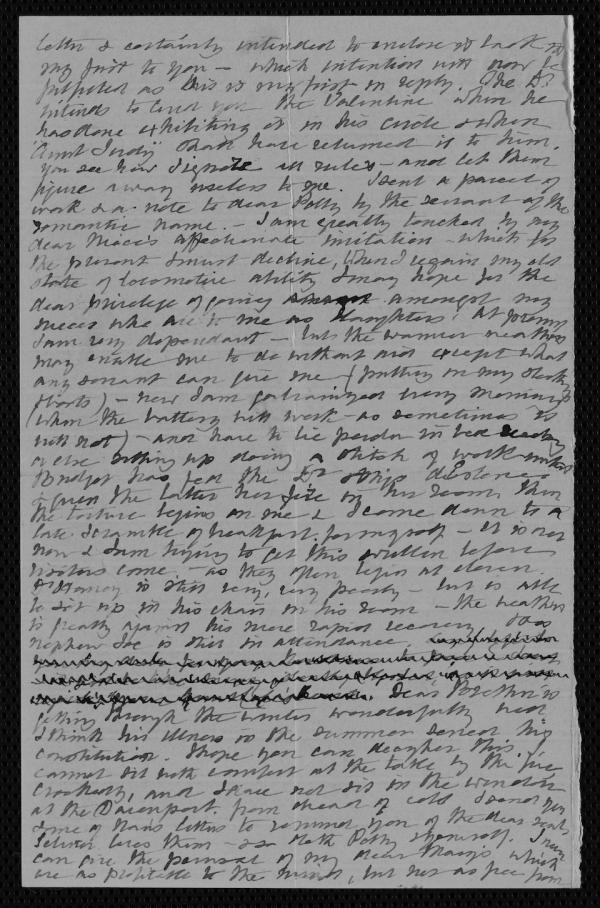 letter & certainly intended to enclose it back
my first to you – which intention will now be
fulfilled as this is my first in reply. The Dr
intends to lend you the Valentine when he
has done exhibiting it in his circle & when
Aunt Judy shall have returned it to him.
You see how I ignore all rules – and let them
figure away useless to me. I sent a parcel of
work & a note to dear Polly by the servant of the
romantic name. – I am greatly touched by my
dear Niece's affectionate invitation – which for
the present I must decline, when I regain my old
state of locomotive ability I may hope for the
dear privilege of going amongst my
nieces who are to me as daughters! At present
I am very dependant – but the warmer weather
may enable me to do without aid except what
any servant can give me – (putting on my stockings
) – now I am galvanized every morning
(when the battery will work – as sometimes it
will not) – and have to lie in bed reading
or else sitting up doing a stitch of work –
Bridget has fed the Dr
& given the latter her fire in her room, then
the torture begins on me & I come down to a
late scramble of breakfast for myself – It is over
now & I am trying to get this written before
visitors come – as they often begin at eleven.
is still very, very poorly – but is able
to sit up in his chair in his room – the weather
is greatly against his more rapid recovery,
nephew Joe is still in attendance.
Dear Brother is
getting through the winter wonderfully well
I think his illness in the summer his
constitution. I hope you can decypher this, I
cannot sit with comfort at the table by the fire
crookedly, and I dare not sit in the window
at the Davenport. from dread of cold I send you
some of letters to remind you of the dear
loves them – so doth Polly & yourself. I
can give the perusal of my dear Mary's which
are as profitable to the mind, but not as free from